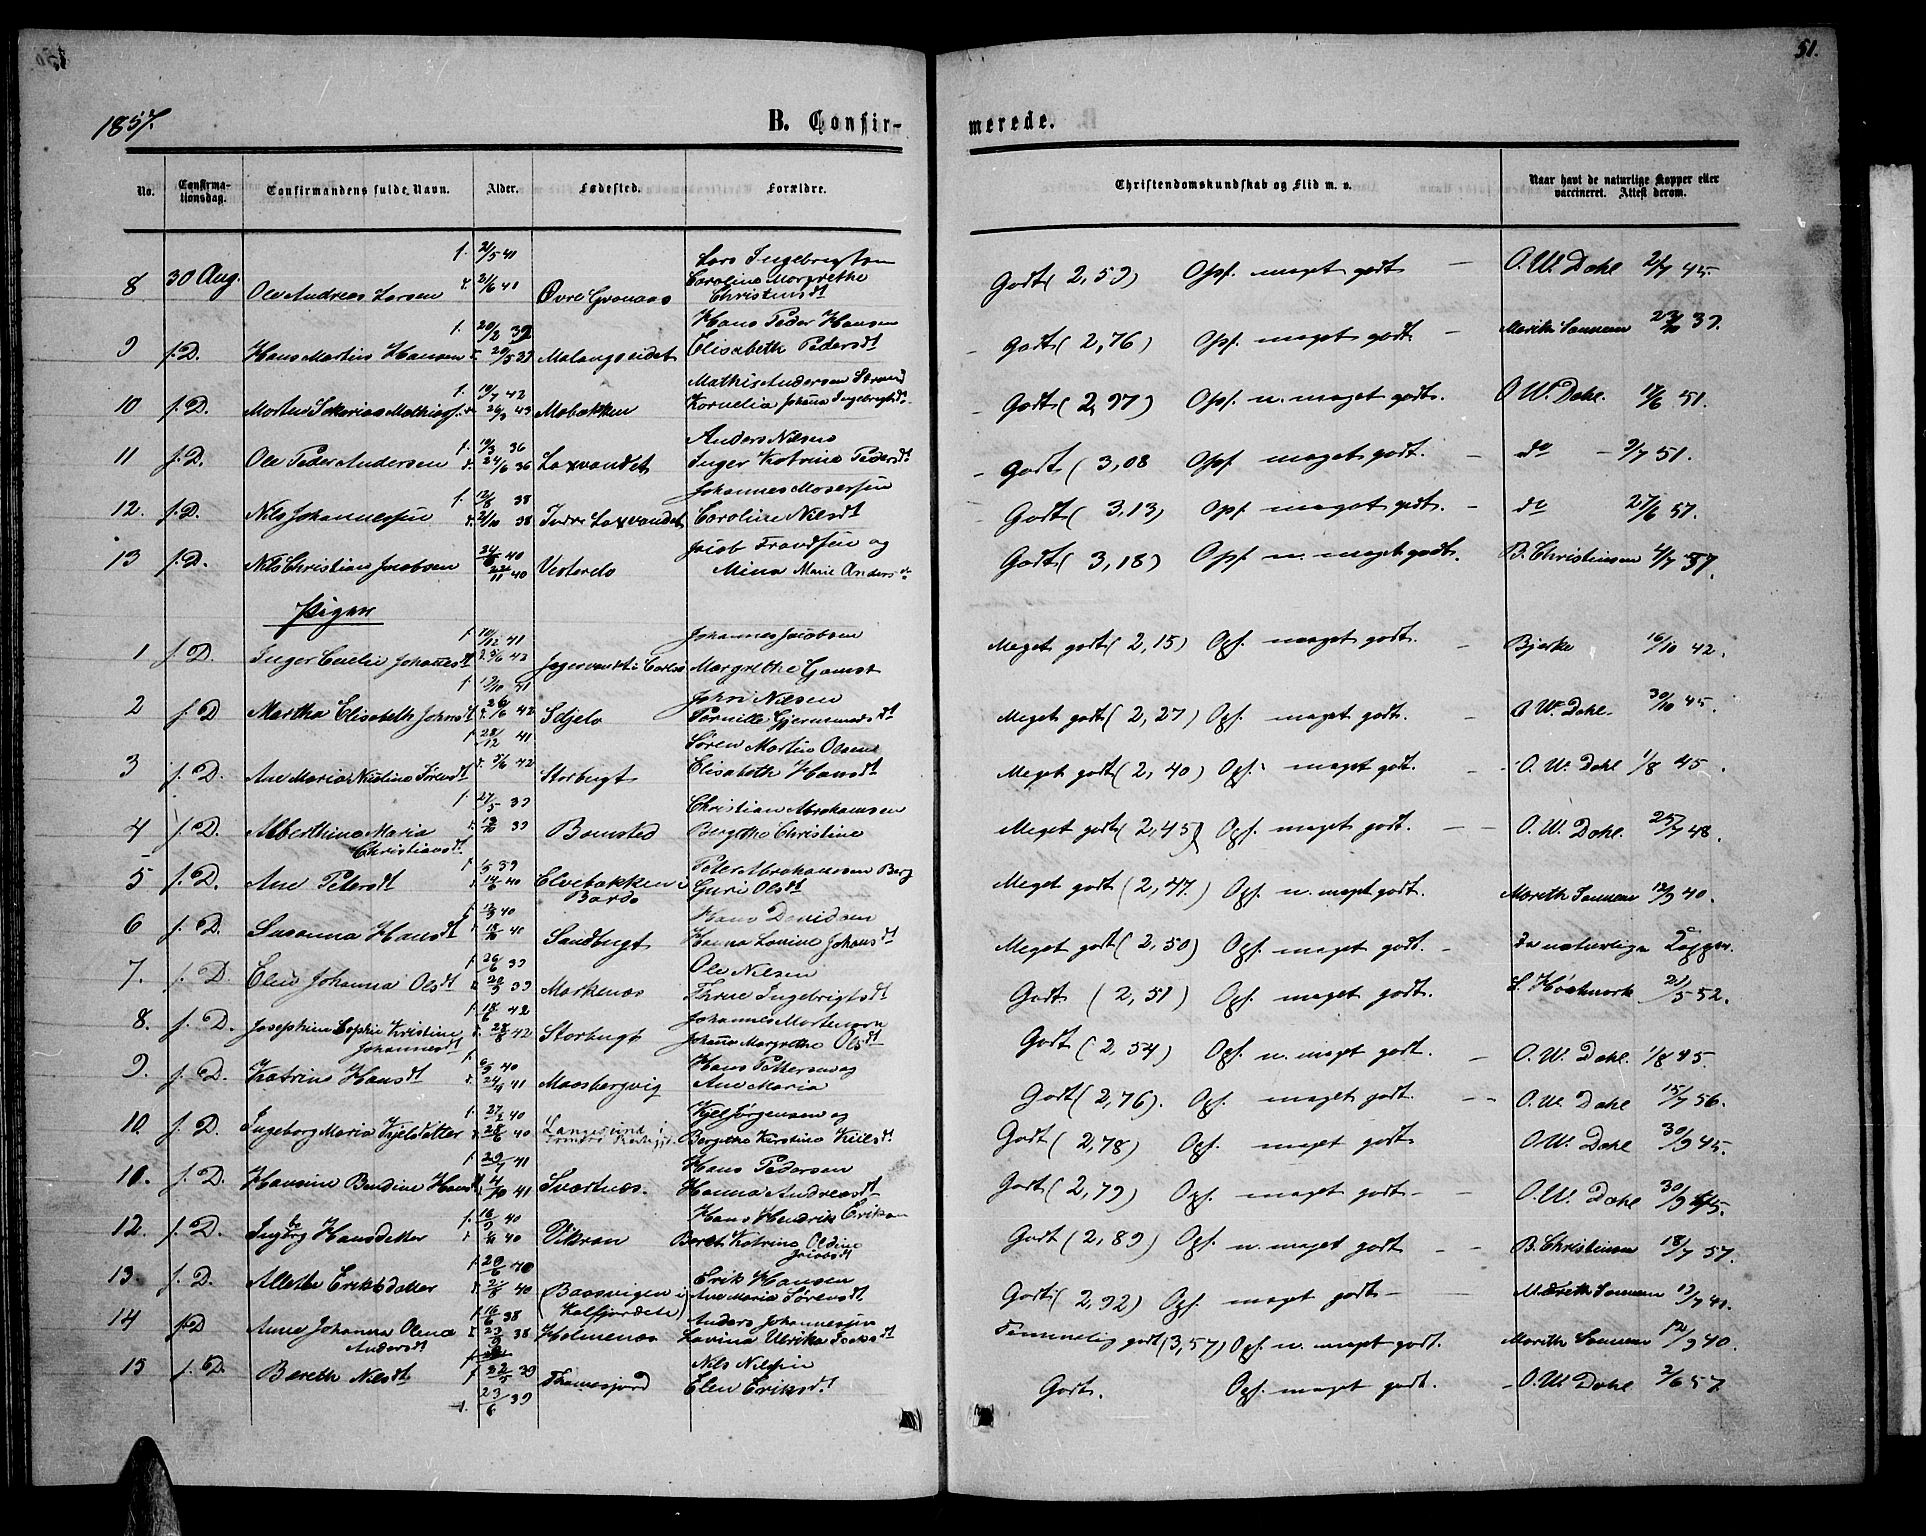 51.
1857.
B. Confir-
merede.
No.
Confirma-
tionsdag.
Confirmandens fulde Navn.
Alder.
Fødested.
Forældre.
Christendomskundskab og Flid m. v.
Naar havt de naturlige Kopper eller
vaccineret. Attest derom.
8 30 Aug. Ole Andreas Larsen f. 21/5 41 21/6 41 Øvre Grønaas Lars Ingebrigtsen
Caroline Margrethe
Christensdt Godt (2,53) Opf. meget godt — O. W. Dahl 2/7 45.
9 f. D. Hans Martin Hansen f. 20/2 39 20/5 39 Malangseidet Hans Peder Hansen
Elisabeth Pedersdt Godt (2,76) Opf. meget godt. — 23/10 39.
10 f. D. f. 19/7 42 26/3 43 Mobakken Mathis Andersen Strand
Kornelia Johanna Ingebrigtsdt Godt (2,97) Opf. n. meget godt. O W. Dahl. 17/6 51.
11 f. D. Ole Peder Andersen f. 19/3 36 24/6 36 Laxvandet Anders Nilsen
Inger Katrine Pedersdt Godt (3,08 Opf. meget godt. — do — 9/7 51.
12. f. D. Nils Johannessen f. 12/8 38 21/10 38 Indre Laxvandet Johannes Mosessen
Caroline Nilsdt Godt (3,13) Opf. meget godt. — do 27/6 57.
13 f. D. Nils Christian Jacobsen 40 22/11 40 Jacob Frandsen og
Mina Marie Andersdt Godt (3,18) Opf. n. meget godt. B. Christensen 4/7 57.
Piger
1 f. D. Inger Cecilie Johannesdt f. 10/12 41 23/6 42 Johannes Jacobsen
Margrethe Gamst Meget godt (2,15) Opf. meget godt. — Bjerke 16/10 42.
2 f. D Martha Elisabeth Johnsdt f. 12/10 41 26/6 42 John Nilsen
Pernille Meget godt (2,27) Opf. meget godt. — O W. Dahl. 30/10 45.
3 f. D. Ane Maria Nicoline f. 28/12 41 5/6 42 Storbugt Søren Martin Olsen
Elisabeth Hansdt Meget godt (2,40) Opf. meget godt. — O. W. Dahl 1/8 45.
4 f. D. Alberthina Maria
Christiansdt f. 27/5 39 13/10 39 Bomsted Christian Abrahamsen
Bergithe Christine Meget godt (2,45) Opf. meget godt. — O. W. Dahl. 25/7 48.
5 f. D. Ane Petersdt 39 14/6 40 Elvebakken i
Bardo Peter Abrahamsen Berg
Guri Olsdt Meget godt (2,47.) Opf. n. meget godt. 12/9 40.
6 f. D. Susanna Hansdt 12/3 40 18/10 40 Sandbugt Hans Davidsen
Hanna Lovise Johansdt Meget godt (2,50) Opf. meget godt. — De naturlige Kopper.
7. f. D. Elen Johanna Olsdt 26/6 39 39 Markenæs Ole Nilsen
Thrine Ingebrigtsdt Godt (2,51) Opf. meget godt. 21/5 52.
8. f. D. Josephine Sophie Kristine
Johannesdt f. 18/6 42 28/8 42 Storbugt Johannes Mortensen
Johanna Margrethe Olsdt Godt (2,54) Opf. n. meget godt. — O. W. Dahl. 1/8 45.
9. f. D. Katrine Hansdt 6/9 40 24/4 41 Maasbergvig Hans Pettersen og
Ane Maria Godt (2,76). Opf. meget godt. — O. W. Dahl 15/7 56.
10. f. D. Ingeborg Maria Kjelsdatter f. 27/2 40 28/6 40 Langesund i Kjel Jørgensen og
Bergithe Kirstine Godt (2,78) Opf. meget godt O W. Dahl 30/9 45.
10. f. D. Hansine Berdine Hansdt f. 20/7 41 4/10 41 Svartnes. Hans Pedersen
Hanna Andreasdt Godt (2,79) Opf. meget godt — O. W. Dahl 30/9 45.
12. f. D. Ingeborg Hansdatter f. 16/2 40 40 Vikran Hans Hendrik Eriksen
Beret Katrine Oldine
Jacobsdt Godt (2,89) Opf. n. meget godt — B. Christensen 18/7 57.
13. f. D. Allethe Eriksdatter f. 20/6 40 2/8 40 Bassvigen i
(Kalfjordete) Erik Hansen
Ane Maria Sørensdt Godt (2,92) Opf. meget godt — 13/7 41.
14 f D Anne Johanna Olena
Andersdt 16/6 38 23/9 38 Holmenæs Anders Johannessen
Lavina Ulrika Isaksdt Temmelig godt (3,57) Opf. n. meget godt. 12/9 40.
15 f. D. Bereth Nilsdt 22/5 39 23/6 39 Nils Nilsen
Elen Eriksdt Godt. Opf. meget godt. — O. W. Dahl 2/6 57